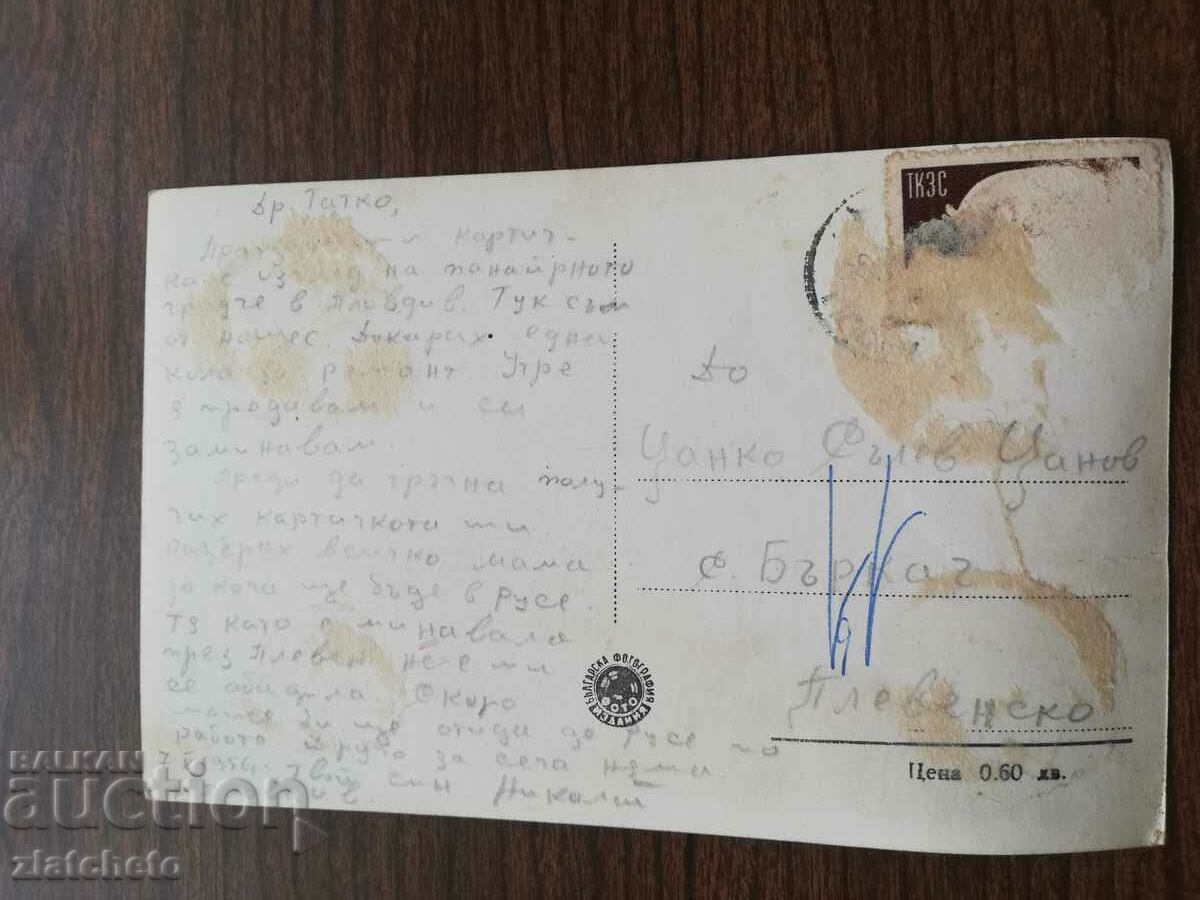 Др. Татко,
картич-
ка с изглед на панаирното
градче в Пловдив. Тук съм
от Докарах една
кола за ремонт Утре
я продавам и си
заминавам.
Преди да тръгна полу-
чих картичката ти
разбрах всичко мама
до кога ще бъде в Русе.
Тя като минавала
през Плевен не е ти
се обадила. Скоро
може би ще отида до Русе по
работа друго за сега няма
1956 г. твой син Николай
ТКЗС
До
Цанко Сълев Цанов
с. Бъркач
Плевенско
Цена 0.60 лв.
БЪЛГАРСКА ФОТОГРАФИЯ
ФОТО
BALKAN
auction
zlatcheto